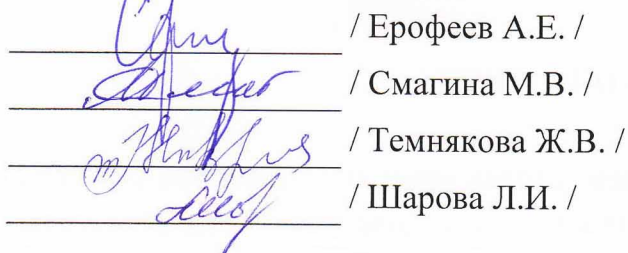 / Ерофеев А.Е. /
/ Смагина М.В. /
/ Темнякова Ж.В. /
/ Шарова Л.И. /